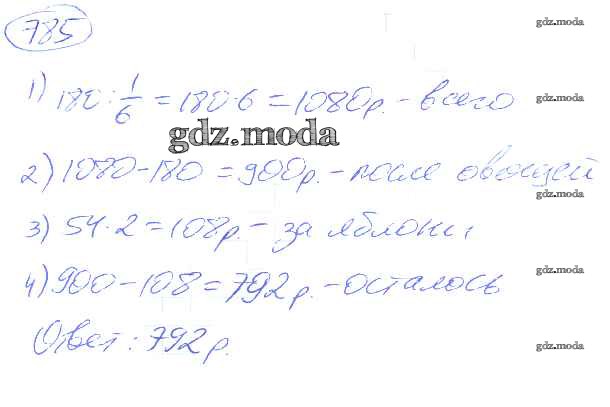 785
gdz.moda
1) 180 : 1/6 = 180·6 = 1080р. - всего
gdz.moda
gdz.moda
2) 1080 - 180 = 900р. - после овощей
gdz.moda
3) 54·2 = 108р. - за яблоки
4) 900 - 108 = 792р. - осталось
gdz.moda
Ответ: 792р.
gdz.moda